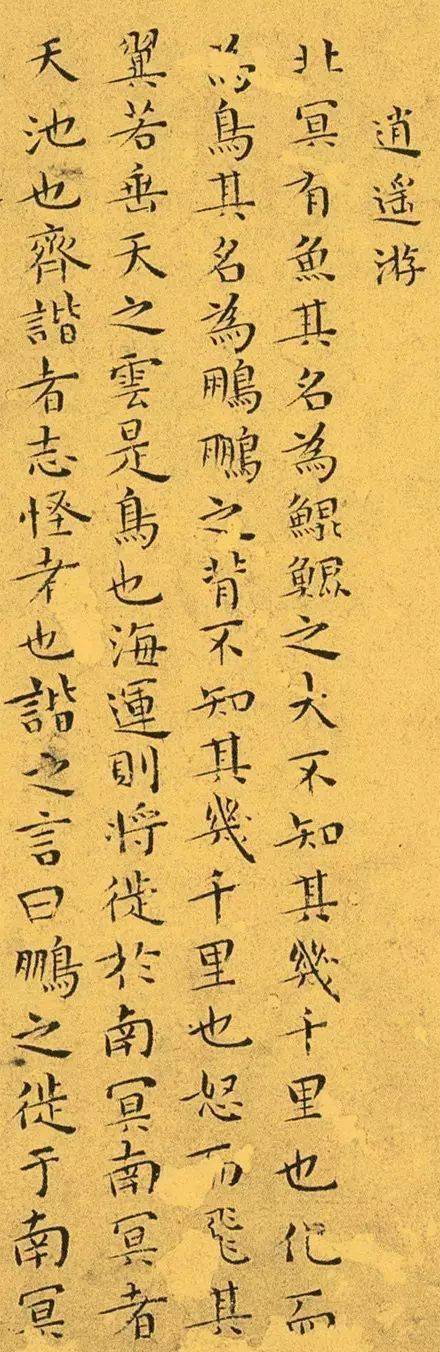 逍遥游
北冥有魚其名為鯤鯤之大不知其幾千里也化而
為鳥其名為鵬鵬之背不知其幾千里也怒而飛其
翼若垂天之雲是鳥也海運則將徙於南冥南冥者
天池也齊諧者志怪者也諧之言曰鵬之徙于南冥